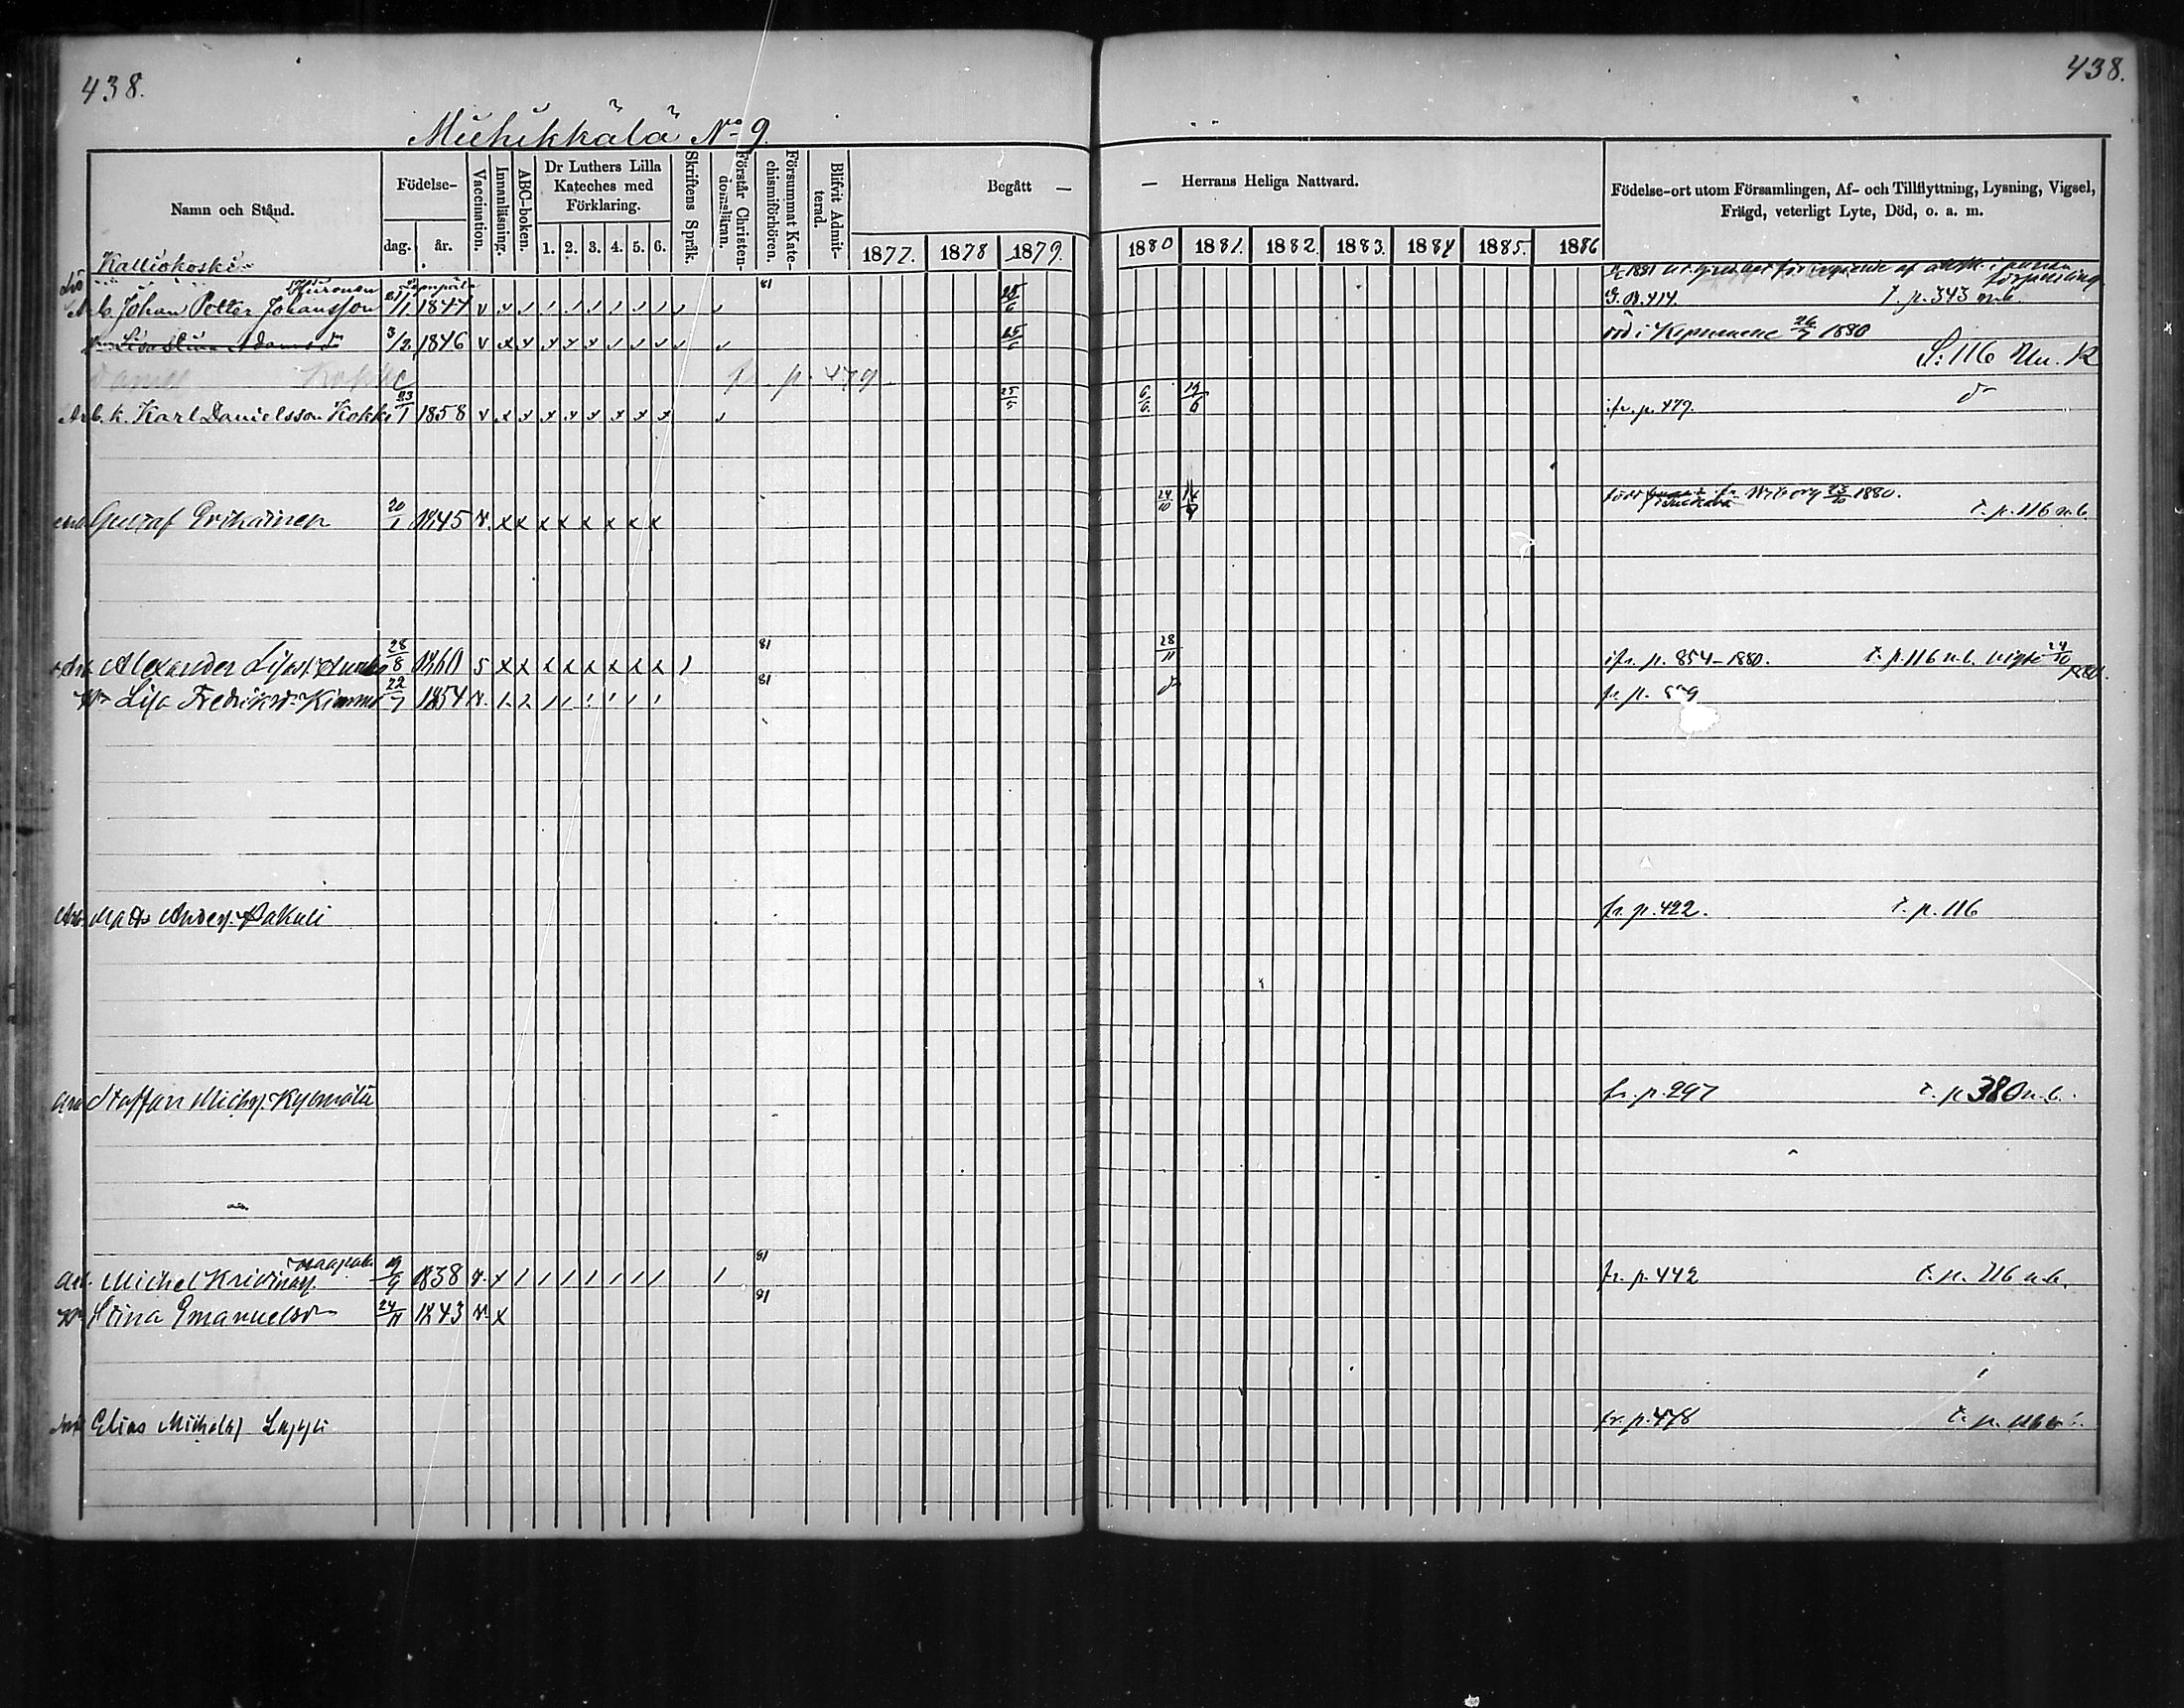 438.
438.
Muhikkälä No 9.
Namn och Stånd.
Födelse-
dag.
år.
Vaccination.
Innanläsning.
ABC-boken.
Dr Luthers Lilla
Kateches med
Förklaring.
1. 2. 3. 4. 5. 6.
Skriftens Språk.
Förstår Christen-
domsläran.
Försummat Kate-
chismiförhören.
Blifvit Admit-
terad.
Begått —
— Herrans Heliga Nattvard.
1877. 1878 1879. 1880 1881. 1882. 1883. 1884 1885. 1886
Födelse-ort utom Församlingen, Af- och Tillflyttning, Lysning, Vigsel,
Frägd, veterligt Lyte, Död, o. a. m.
Kalliokoski
Huronen 81
Arb. Johan Petter Johansson 21/1 1847 v 25/6 t. p. 343 n.b.
Lisa Stina Adamsdr 3/2 1846 v x x 25/6 död i Kymmene 26/7 1880
S: 116 Nu. K
Daniel Kokki fr. p. 479.
Arb. k. Karl Danielsson Kokki 23/1 1858 v x 25/5 6/6 12/6 ifr. p. 479. dr
Gustaf Erikainen 20/1 1845 v. x x x x x x x x 24/10 född Wiborg 1880. t. p. 116 n.b.
81
Alexander 28/8 1860 s x x x x x x x x 28/11 ifr. p. 854-1880. t. p. 116 n.b. vigde 24/10 1880.
81
Lisa Fredriksdr Kimmo 22/7 1854 v. dr fr. p.
Arb. Matts Anders. Pakuli fr. p. 422. t. p. 116
Staffan Michs. Kylmälä fr. p. 297 t. p 380 n.b.
81
Arb. Michel 19/9 1838 v. x fr. p. 442 t. p. 116 n.b.
81
Stina Emanuelsdr 24/11 1843 v. x
Elias Michelss Lappi fr. p. 478 t. p. 116